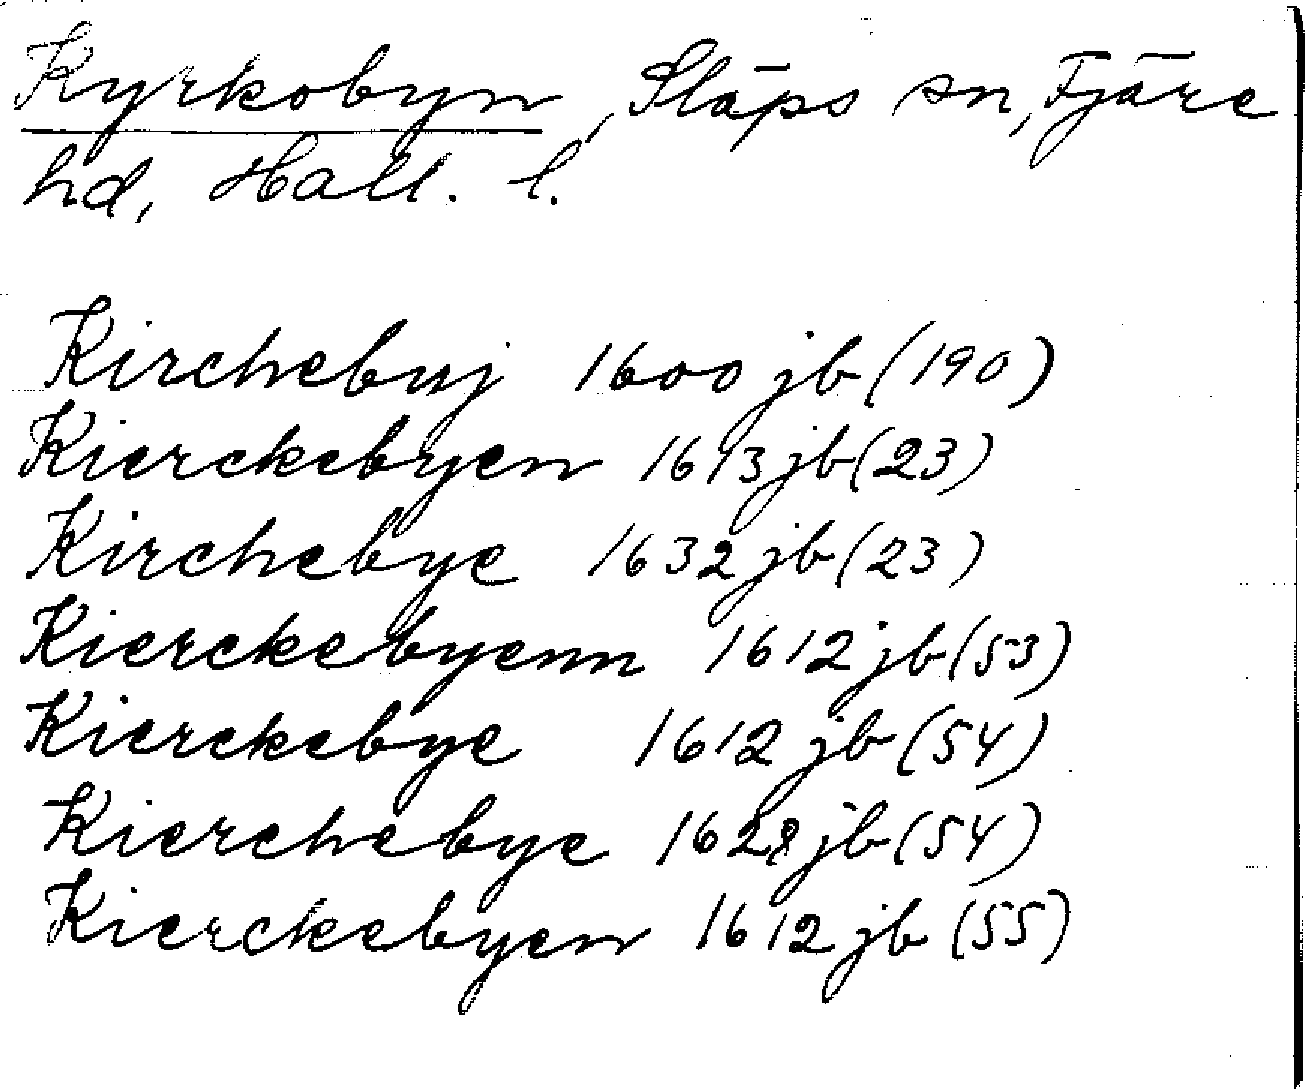 Kyrkobyn, Släps sn, Fjäre
hd, Hall. l.
Kirchebuj 1600 jb (190)
Kierckebyen 1613 jb (23)
Kirchebye 1632 jb (23)
Kierckebyenn 1612 jb (53)
Kierckebye 1612 jb (54)
Kierchebye 1628 jb (54)
Kierckebyen 1612 jb (55)